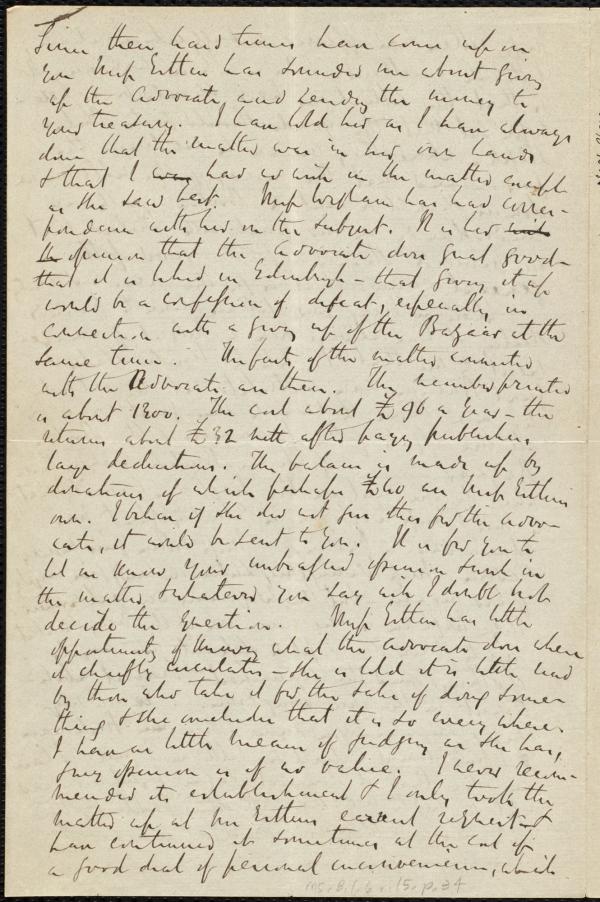 Since then hard times have come upon
you Miss Estlin has sounded me about giving
up the Advocate and sending the money to
your treasury. I have told her as I have always
done that the matter was in her own hands
& that I had no wish in the matter except
as she saw best. Miss Wigham has had corres-
pondence with her on the subject. It is her
the opinion that the Advocate does great good -
that it is liked in Edinburgh - that giving it up
would be a confession of defeat, especially in
connection with a giving up of the Bazaar at the
same time. The facts of the matter connected
with the Advocate are these. The number printed
is about 1300. The cost about £96 a year - the
returns about £32 nett after paying publishers
large deductions. The balance is made up by
donations, of which perhaps £40 are Miss Estlin's
own. I believe if she did not give this for the Advo-
cate, it would be sent to you. It is for you to
let me know your unbiassed opinion in
the matter & whatever you say will I doubt not
decide the question. Miss Estlin has little
opportunity of knowing what the Advocate does where
it chiefly circulates - she is told it is little read
by those who take it for the sake of doing some-
thing & she concludes that it is so every where.
I have as little means of judging as she has,
& my opinion is of no value. I never recom-
mended its establishment & I only took the
matter up at her Estlin's earnest request - &
have continued it sometimes at the cost of
a good deal of personal inconvenience, which
ms. B.1.6 v.15, p.34